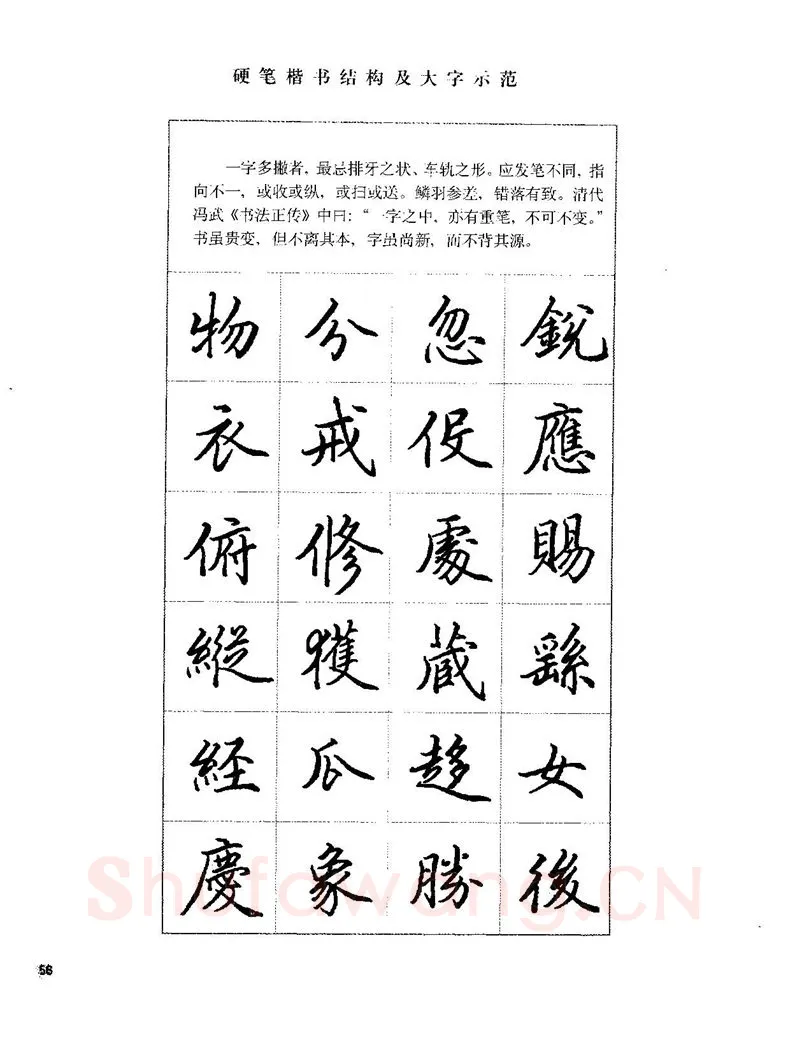 硬笔楷书结构及大字示范
一字多撇者，最忌排牙之状、车轨之形。应发笔不同，指
向不一，或收或纵，或扫或送。鳞羽参差，错落有致。清代
冯武《书法正传》中曰：“一字之中，亦有重笔，不可不变。”
书虽贵变，但不离其本，字虽尚新，而不背其源。
物 分 忽 銳
衣 戒 應
俯 修 處 賜
縱 獲 蔵 繇
経 瓜 趍 女
慶 象 勝 後
Shufawang.CN
56